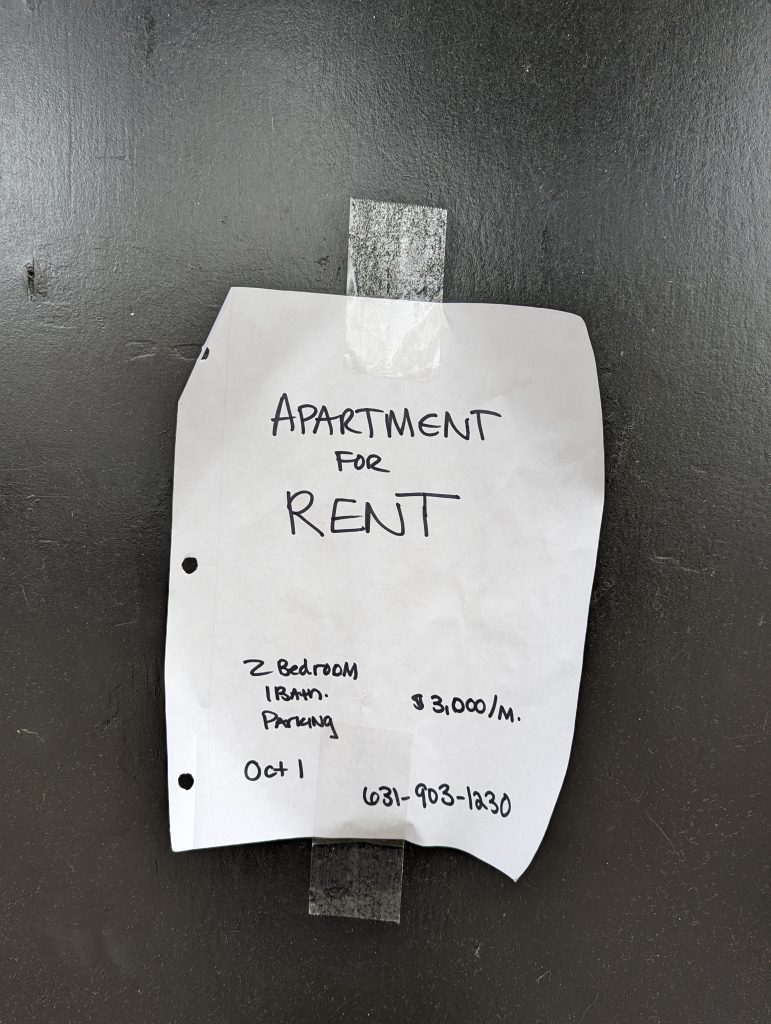 APARTMENT
FOR
RENT
2 BedROOM
1 BAth.
PARKING
$3,000/M.
Oct 1
631-903-1230